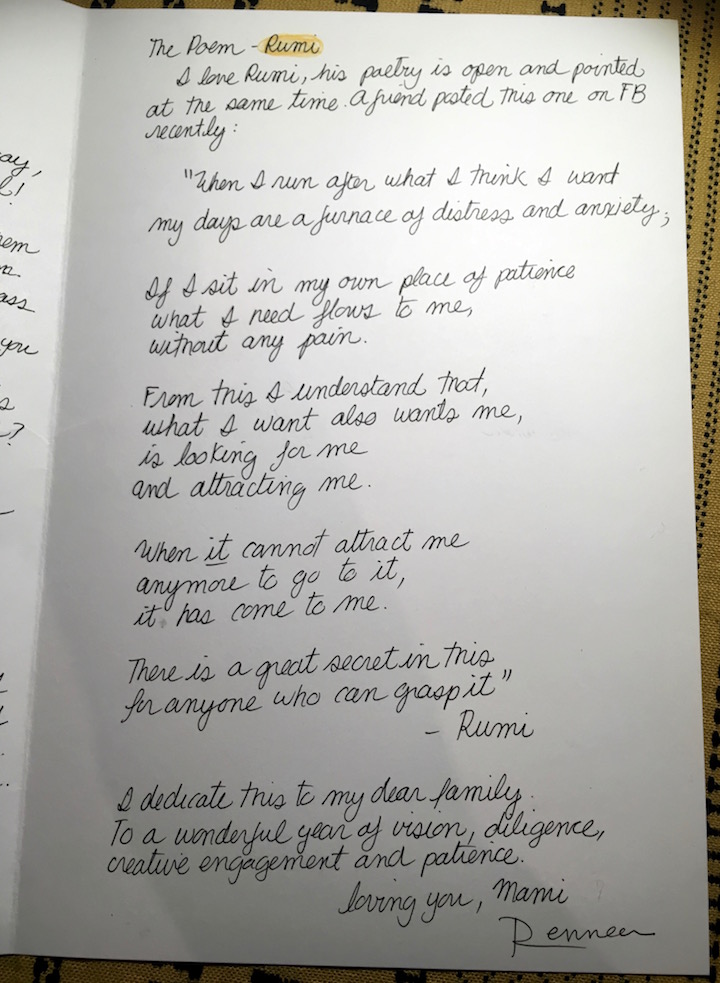 The Poem - Rumi
I love Rumi, his poetry is open and pointed
at the same time. A friend posted this one on FB
recently:
"When I run after what I think I want
my days are a furnace of distress and anxiety;
If I sit in my own place of patience
what I need flows to me,
without any pain.
From this I understand that,
what I want also wants me,
is looking for me
and attracting me.
When it cannot attract me
anymore to go to it,
it has come to me.
There is a great secret in this
for anyone who can grasp it"
- Rumi
I dedicate this to my dear family.
To a wonderful year of vision, diligence,
creative engagement and patience.
loving you, Mami
you
?